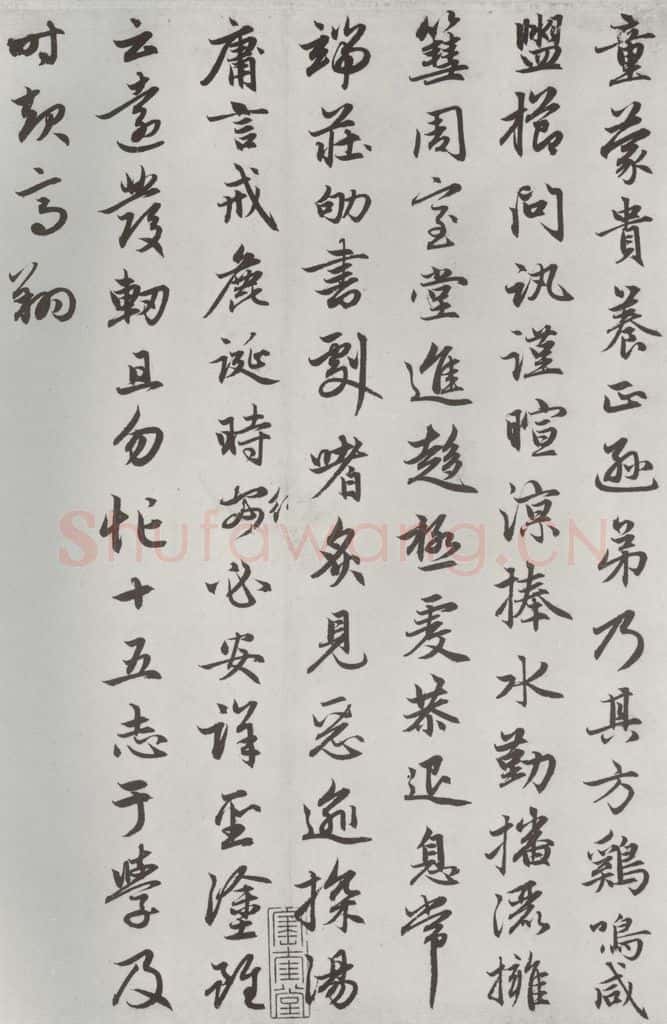 童蒙貴養正遜弟乃其方鷄鳴咸
盥櫛問訊謹暄涼捧水勤播灑擁
篲周室堂進趨極虔恭退息常
端莊劬書劇嗜炙見惡逾探湯
庸言戒麁誕時行必安詳聖塗雖
云遠發軔且勿忙十五志于學及
时起高翔
Shufawang.CN